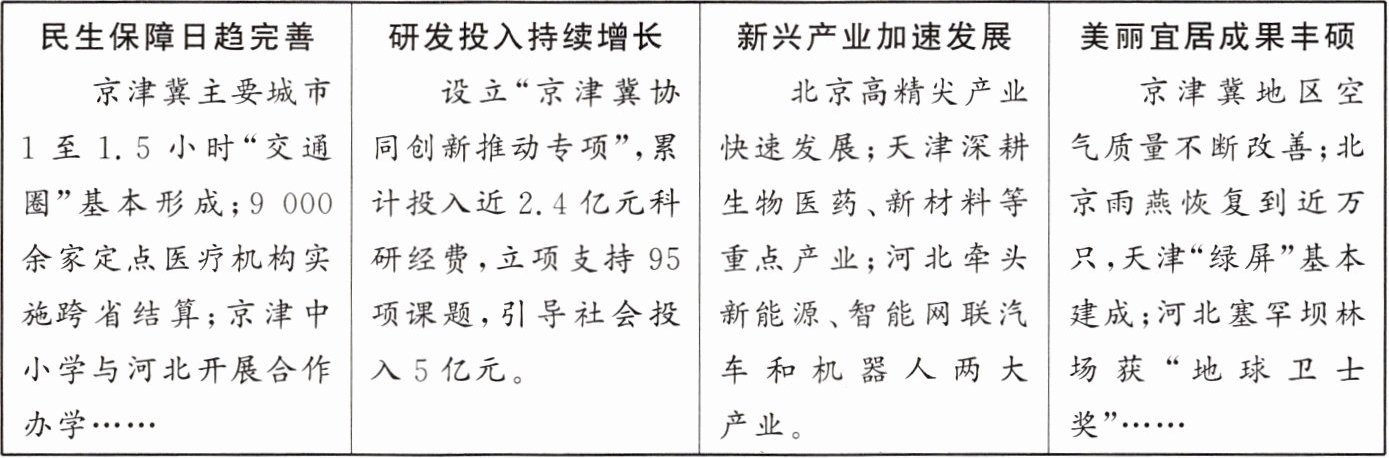 民生保障日趋完善
京津冀主要城市
1至1.5小时“交通
圈”基本形成;9 000
余家定点医疗机构实
施跨省结算;京津中
小学与河北开展合作
办学……
研发投入持续增长
设立“京津冀协
同创新推动专项”,累
计投入近2.4亿元科
研经费,立项支持95
项课题,引导社会投
入5亿元。
新兴产业加速发展
北京高精尖产业
快速发展;天津深耕
生物医药、新材料等
重点产业;河北牵头
新能源、智能网联汽
车和机器人两大
产业。
美丽宜居成果丰硕
京津冀地区空
气质量不断改善;北
京雨燕恢复到近万
只,天津“绿屏”基本
建成;河北塞罕坝林
场获“地球卫士
奖”……